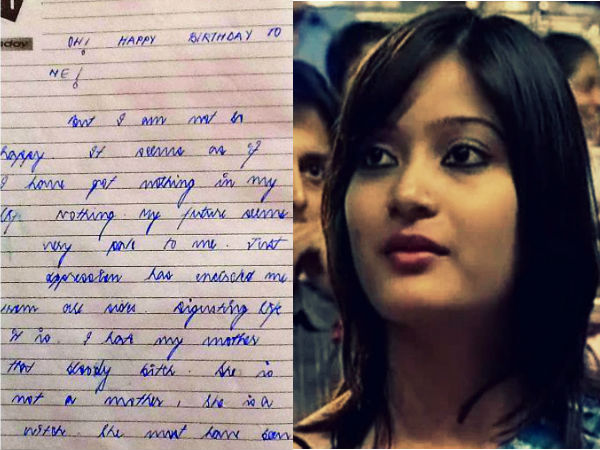 day
OH! HAPPY BIRTHDAY TO
ME!
But I am not so
happy It seems as if
I have got nothing in my
life Nothing. My future seems
very pale to me. Just
depression has encircled me
from all now. Disgusting life
it is. I hate my mother
that bloody bitch. She is
not a mother, she is a
witch. She must have been